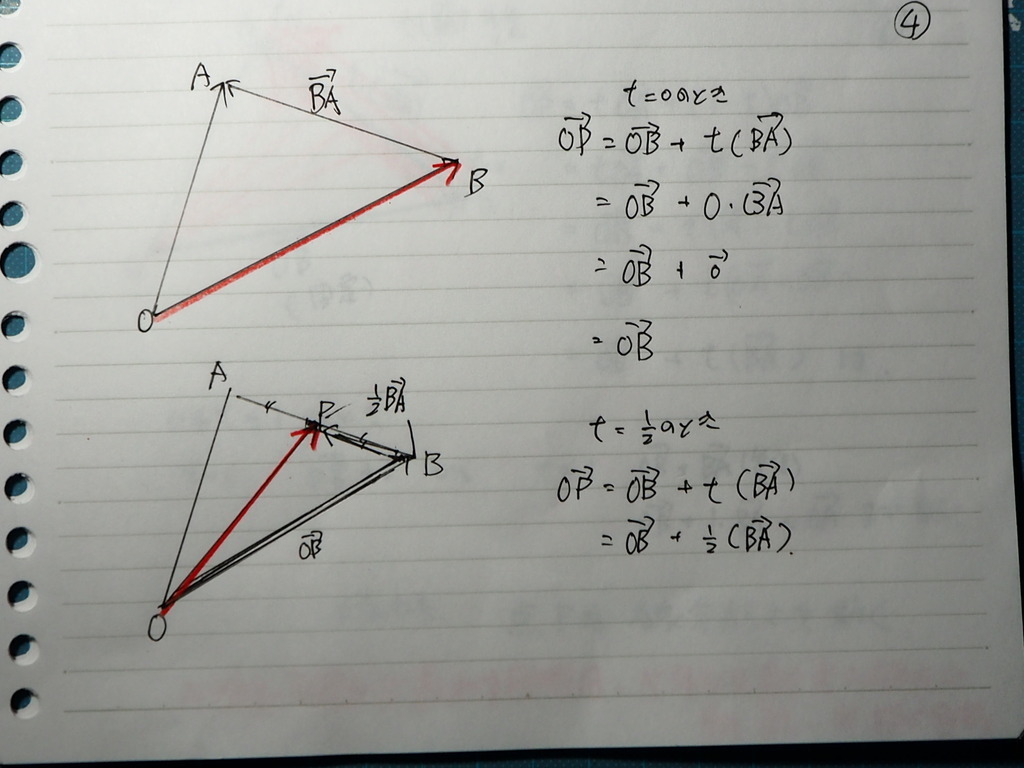 ④
A
BA→
B
O
t=0のとき
OP→ = OB→ + t(BA→)
= OB→ + 0・BA→
= OB→ + 0→
= OB→
A
P
1/2 BA→
B
OB→
O
t = 1/2 のとき
OP→ = OB→ + t (BA→)
= OB→ + 1/2 (BA→).